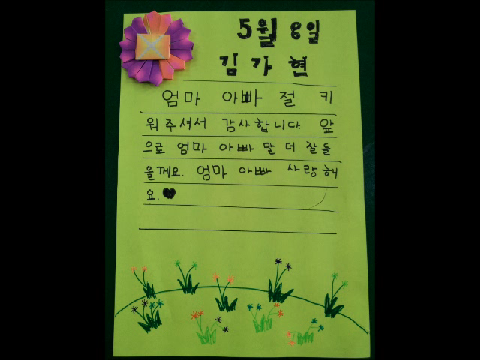 5월 8일
김가현
엄마 아빠 절 키
워주셔서 감사합니다. 앞
으로 엄마 아빠 말 더 잘들
을게요. 엄마 아빠 사랑해
요.♥